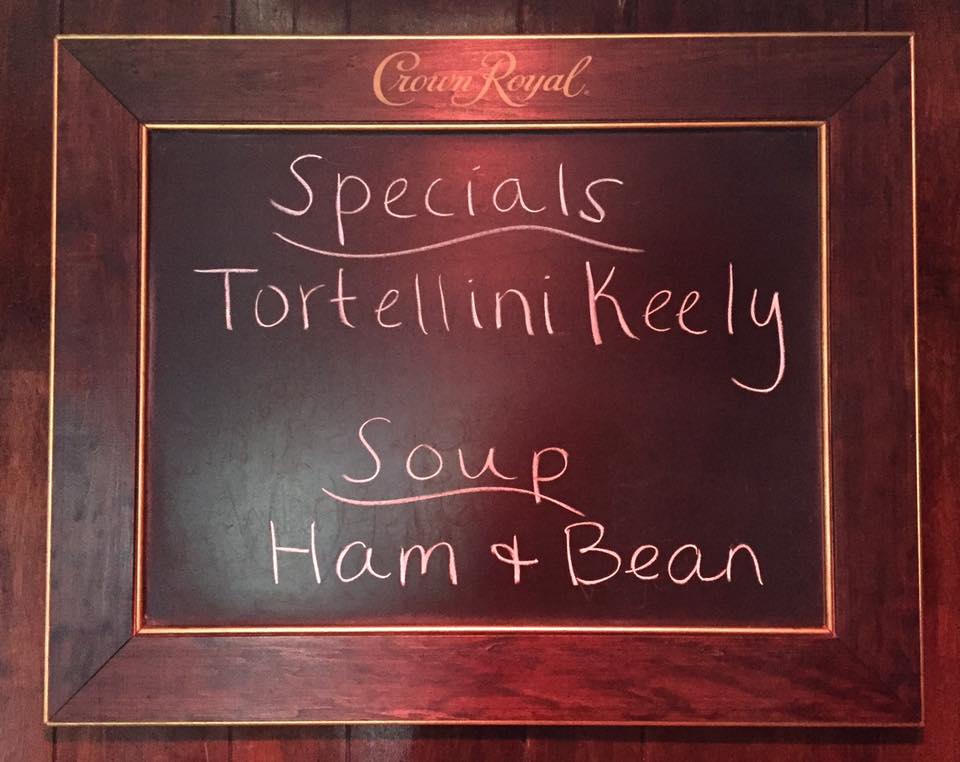 Crown Royal
Specials
Tortellini Keely
Soup
Ham & Bean